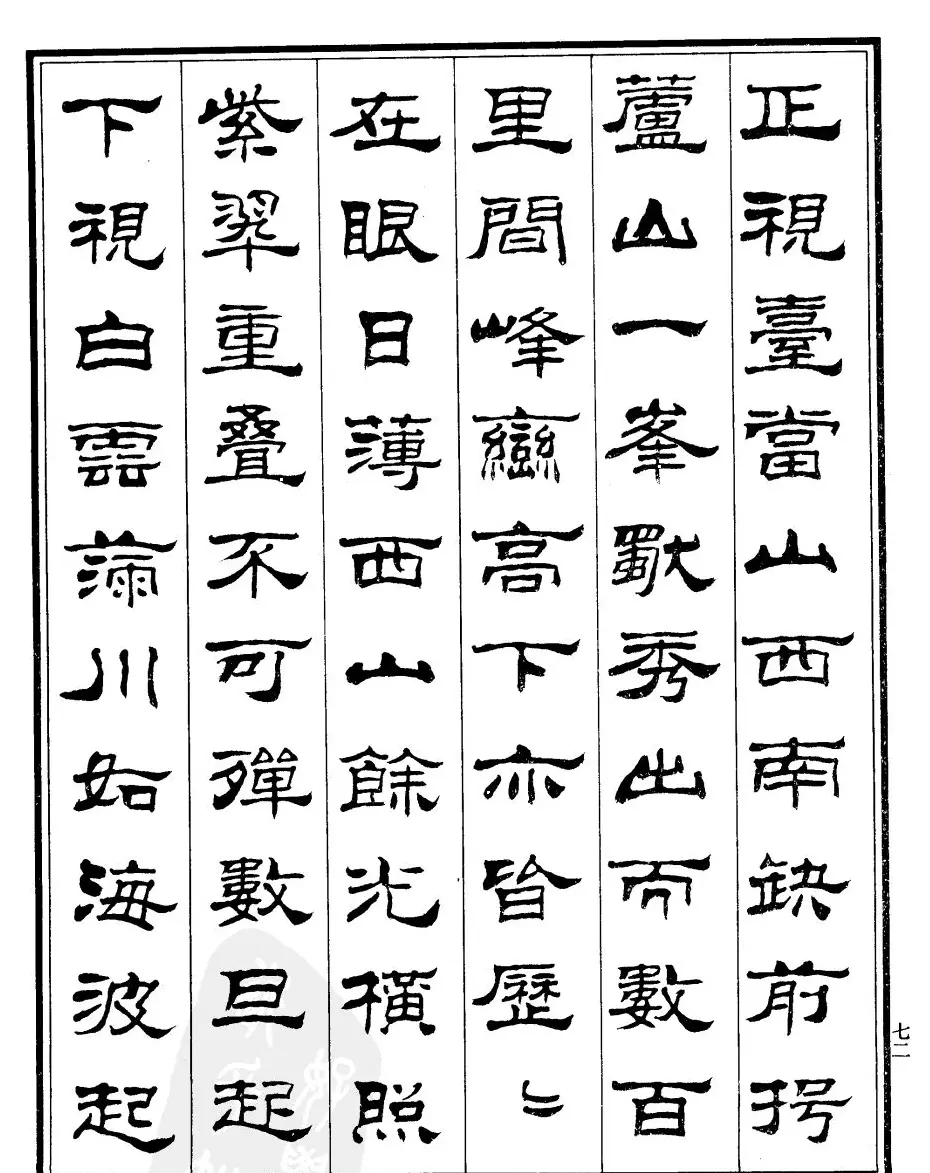 正視臺當山西南缺前揖
蘆山一峯獨秀出而數百
里間峰巒高下亦皆歷〻
在眼日薄西山餘光橫照
紫翠重叠不可殫數旦起
下視白雲滿川如海波起
七二